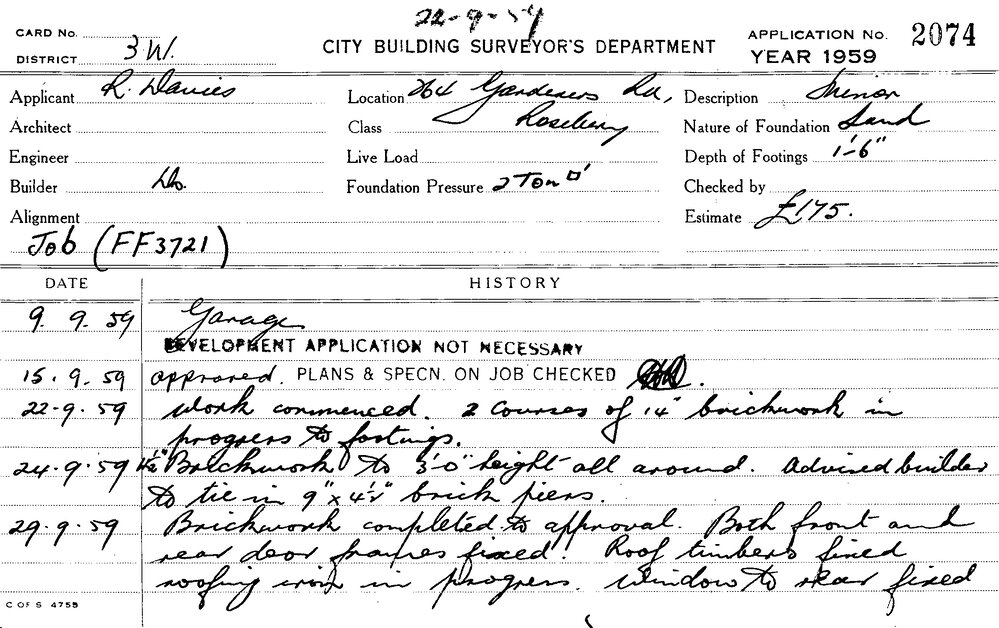 22-9-59
CARD No.
DISTRICT 3W.
CITY BUILDING SURVEYOR'S DEPARTMENT
APPLICATION No. 2074
YEAR 1959
Applicant R. Davies
Location 264 Gardeners Rd,
Description Minor
Architect
Class Rosebery
Nature of Foundation Sand
Engineer
Live Load
Depth of Footings 1'-6"
Builder Do.
Foundation Pressure 2 Ton □'
Checked by
Alignment
Estimate £175.
Job (FF3721)
DATE HISTORY
9. 9. 59 Garage
DEVELOPMENT APPLICATION NOT NECESSARY
15. 9. 59 approved. PLANS & SPECN. ON JOB CHECKED
22-9. 59 Work commenced. 2 courses of 14" brickwork in
progress to footings.
24.9.59 4½" Brickwork to 3'-0" height all around. Advised builder
to tie in 9" x 4½" brick piers.
29.9.59 Brickwork completed to approval. Both front and
rear door frames fixed. Roof timbers fixed
roofing iron in progress. Window to rear fixed
C OF S 4755